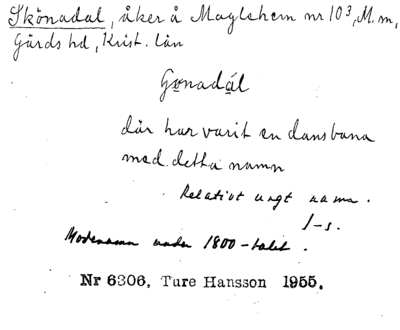 Skönadal, åker å Maglehem nr 10³, M. m,
Gärds hd, Krist. län
Gonadál
där har varit en dansbana
med detta namn
Relativt ungt namn.
I-s.
Modenamn under 1800-talet.
Nr 6306, Ture Hansson 1955.